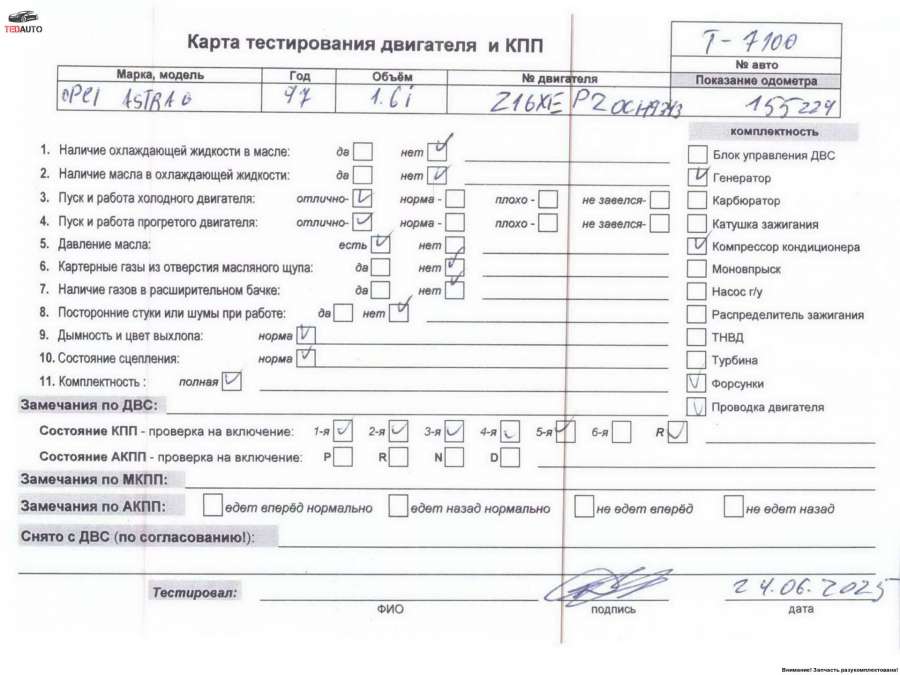 TEDAUTO
Карта тестирования двигателя и КПП
T-7100
№ авто
Марка, модель Год Объём № двигателя Показание одометра
OPEL ASTRA G 97 1.6i Z16XE 155224
комплектность
1. Наличие охлаждающей жидкости в масле: да нет
Блок управления ДВС
2. Наличие масла в охлаждающей жидкости: да нет
Генератор
3. Пуск и работа холодного двигателя: отлично- норма - плохо - не завелся-
Карбюратор
4. Пуск и работа прогретого двигателя: отлично- норма - плохо - не завелся-
Катушка зажигания
5. Давление масла: есть нет
Компрессор кондиционера
6. Картерные газы из отверстия масляного щупа: да нет
Моновпрыск
7. Наличие газов в расширительном бачке: да нет
Насос г/у
8. Посторонние стуки или шумы при работе: да нет
Распределитель зажигания
9. Дымность и цвет выхлопа: норма
ТНВД
10. Состояние сцепления: норма
Турбина
11. Комплектность : полная
Форсунки
Замечания по ДВС:
Проводка двигателя
Состояние КПП - проверка на включение: 1-я 2-я 3-я 4-я 5-я 6-я R
Состояние АКПП - проверка на включение: P R N D
Замечания по МКПП:
Замечания по АКПП: едет вперёд нормально едет назад нормально не едет вперёд не едет назад
Снято с ДВС (по согласованию!):
Тестировал: 24.06.2025
ФИО подпись дата
Внимание! Запчасть разукомплектована!